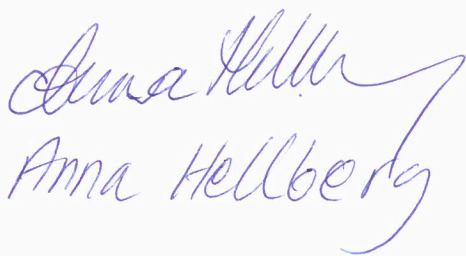 Anna Hellberg
Anna Hellberg